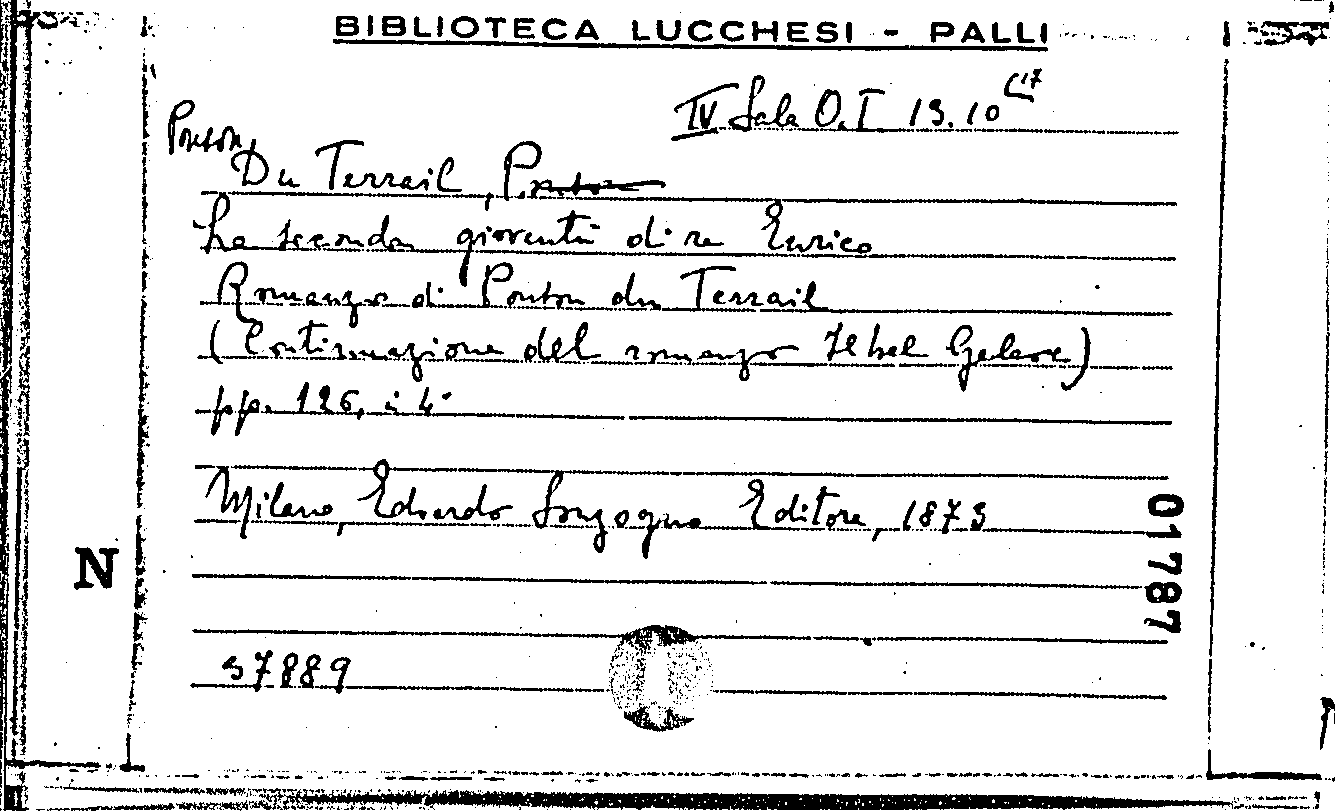 BIBLIOTECA LUCCHESI - PALLI
IV Sala O. I 13.10 (17
Ponson
Du Terrail, Ponson
La seconda gioventù di re Enrico
Romanzo di Ponson du Terrail
(Continuazione del romanzo Il bel Galaor)
pp. 126, in 4°
Milano, Edoardo Sonzogno Editore, 1873
37889
N
01787